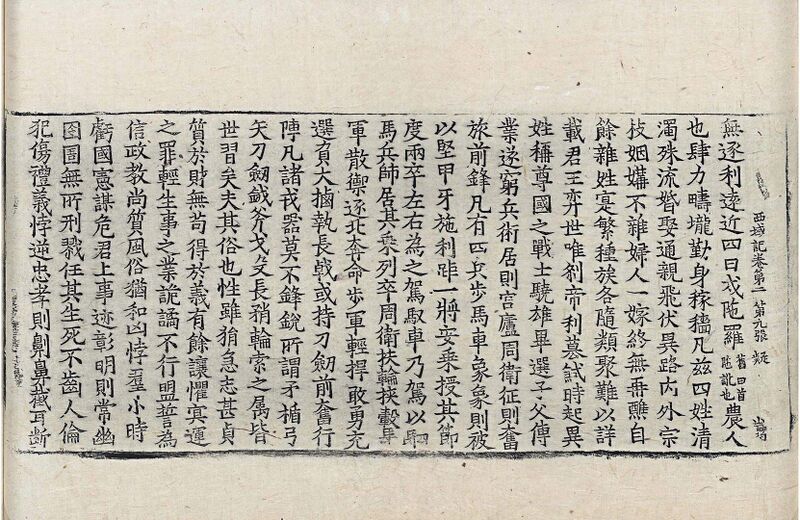 無逐利遠近四曰戍陁羅舊曰首陁訛也農人
西域記卷第二 第九張
也肆力疇壠勤身稼穡凡茲四姓清
濁殊流婚娶通親飛伏異路內外宗
枝姻媾不雜婦人一嫁終無再醮自
餘雜姓寔繁種族各隨類聚難以詳
載君王弈世唯剎帝利篡弒時起異
姓稱尊國之戰士驍雄畢選子父傳
業遂窮兵術居則宮廬周衛征則奮
旅前鋒凡有四兵步馬車象象則被
以堅甲牙施利距一將安乘授其節
度兩卒左右為之駕馭車乃駕以駟
馬兵帥居其乘列卒周衛扶輪挾轂馬
軍散禦逐北奔命步軍輕捍敢勇充
選負大樐執長戟或持刀劒前奮行
陣凡諸戎器莫不鋒銳所謂矛楯弓
矢刀劒鉞斧戈殳長矟輪索之属皆
世習矣夫其俗也性雖狷急志甚貞
質於財無苟得於義有餘讓懼冥運
之罪輕生事之業詭譎不行盟誓為
信政教尚質風俗猶和凶悖羣小時
虧國憲謀危君上事迹彰明則常幽
囹圄無所刑戮任其生死不齒人倫
犯傷禮義悖逆忠孝則劓鼻截耳斷